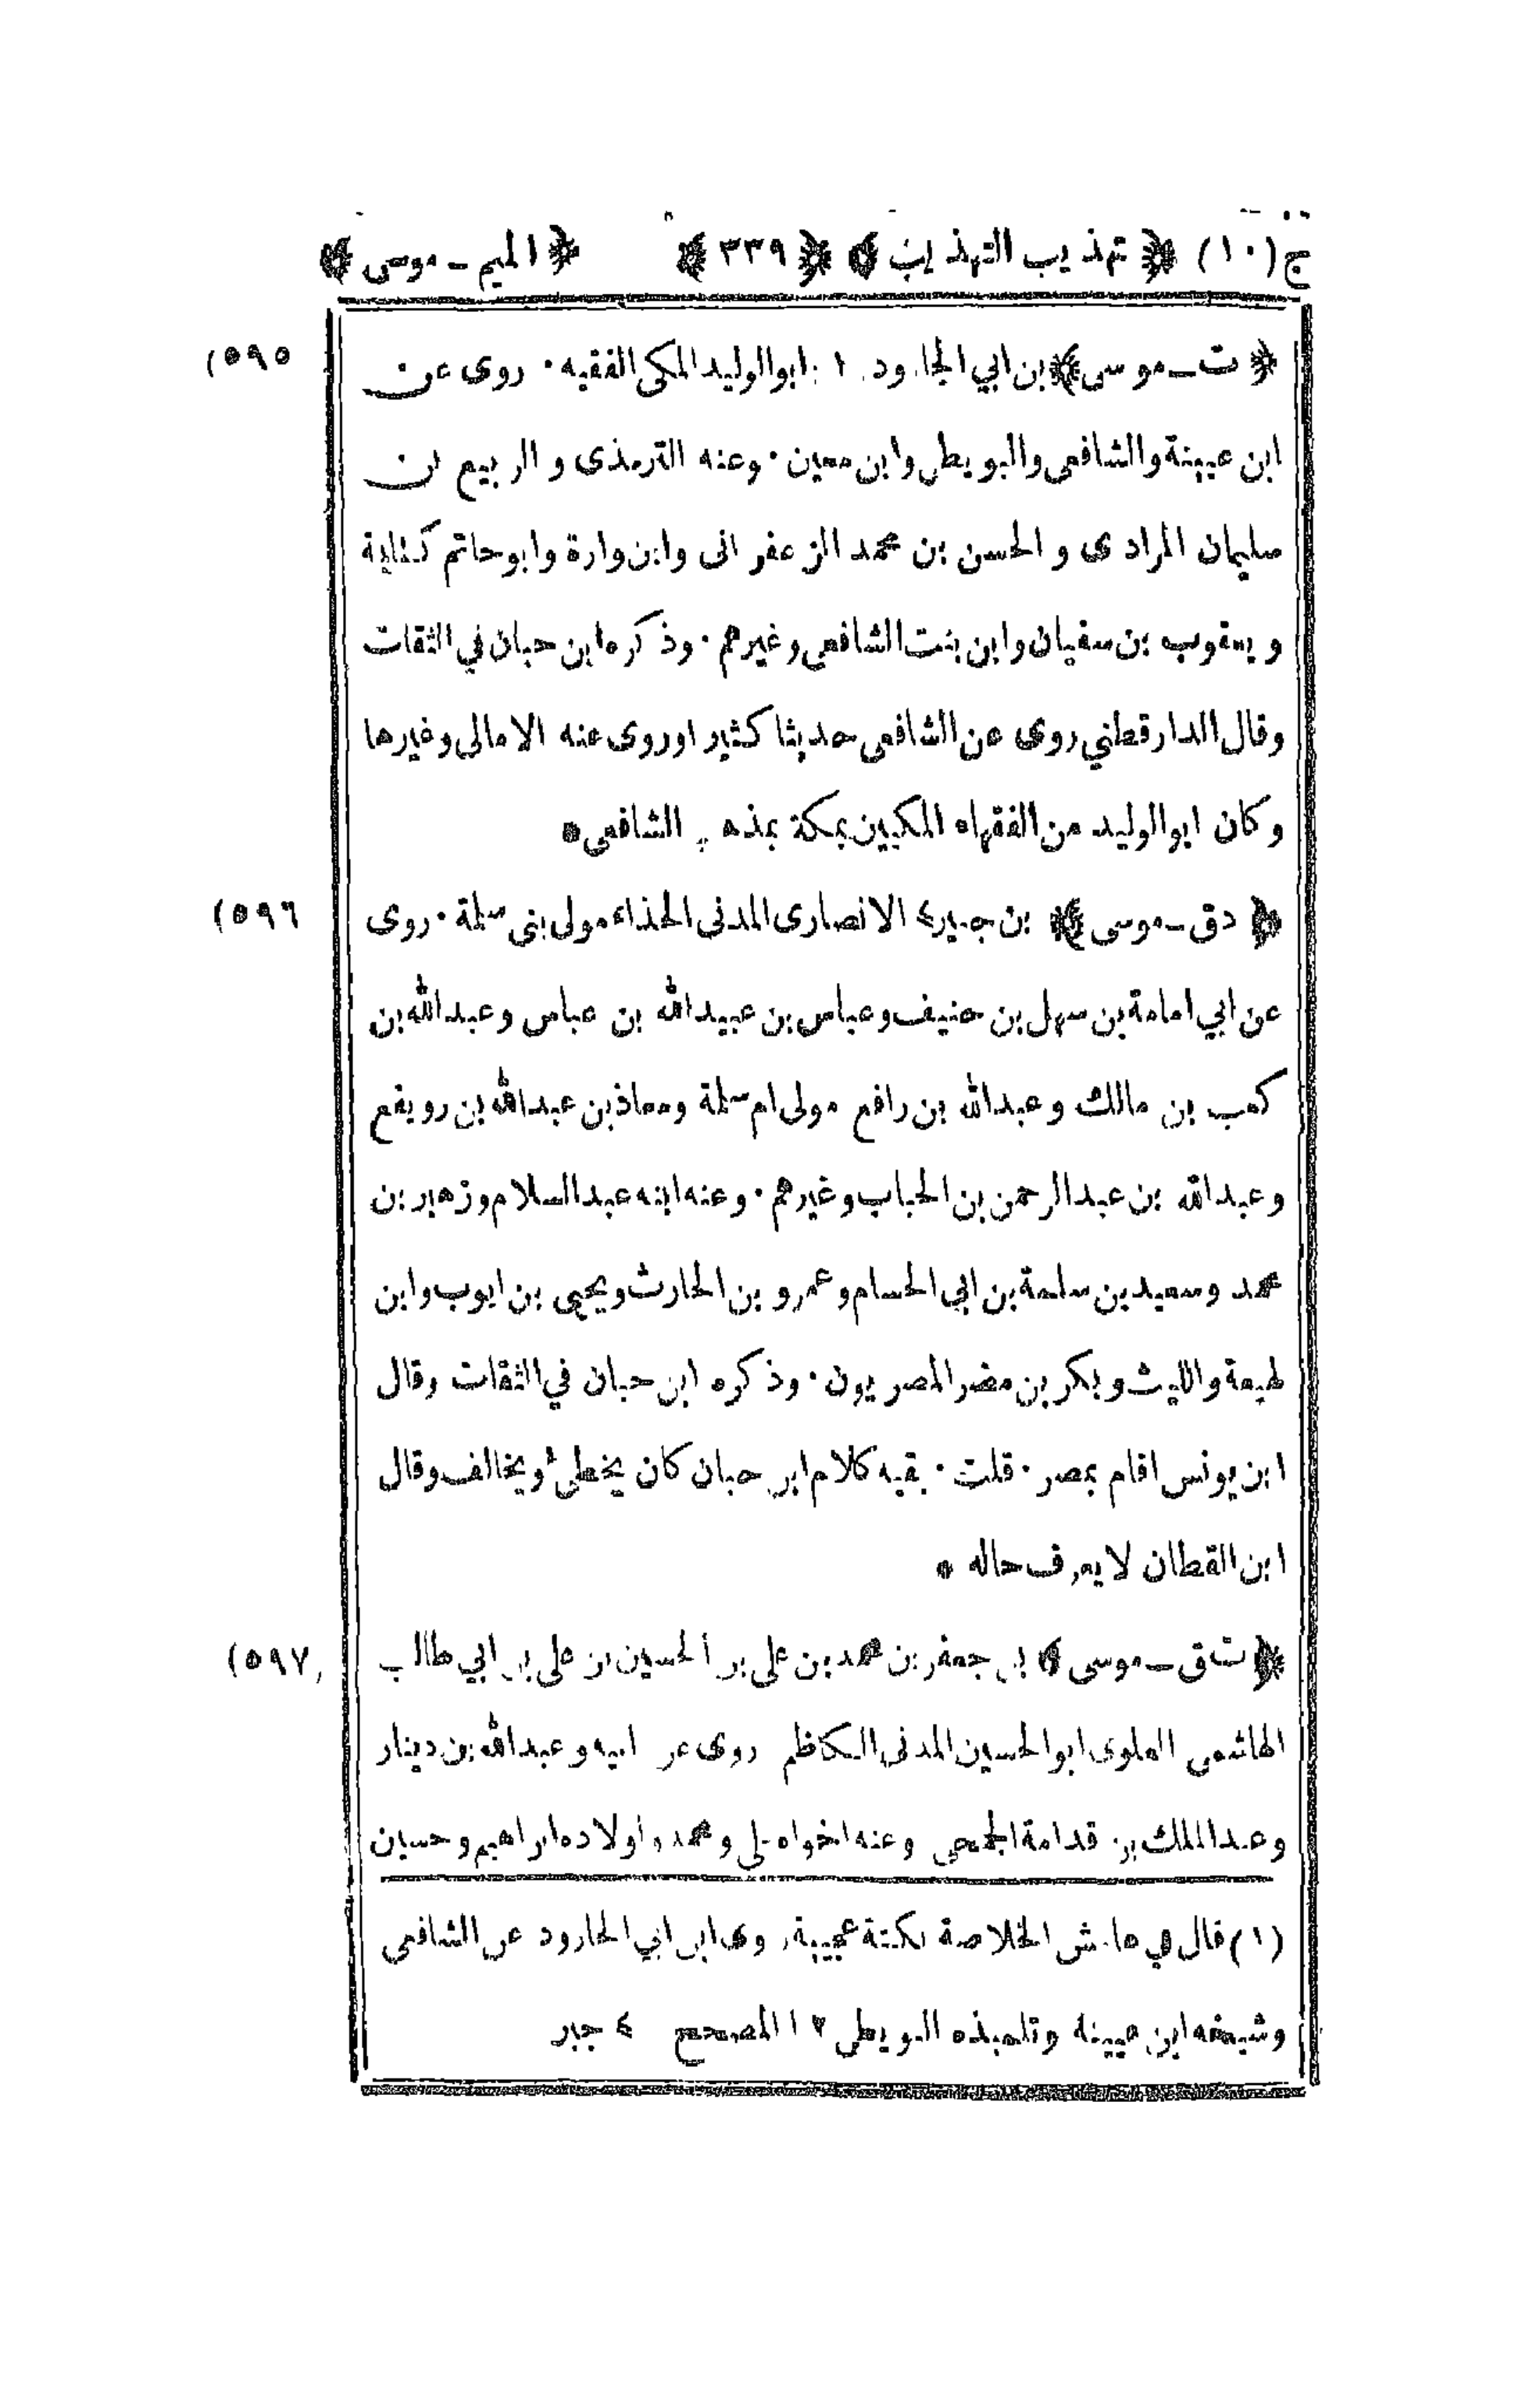 ج (١٠) ﴿ تهذيب التهذيب ﴾ ﴿ ٣٣٩ ﴾ ﴿ الميم ـ موسى ﴾
(٥٩٥
﴿ ت ـ موسى ﴾ بن ابي الجارود ١ ابو الوليد المكى الفقيه · روى عن
ابن عيينة والشافعى والبويطى وابن معين · وعنه الترمذى و الربيع بن
سليمان المرادى و الحسن بن محمد الزعفرانى وابن وارة وابو حاتم كتابة
و يعقوب بن سفيان وابن بنت الشافعى وغيرهم · وذكره ابن حبان في الثقات
وقال الدار قطني روى عن الشافعى حديثا كثيرا وروى عنه الامالى وغيرها
وكان ابو الوليد من الفقهاء المكيين بمكة بمذهب الشافعى •
(٥٩٦
﴿ دق ـ موسى ﴾ بن جبير ٤ الانصارى المدنى الحذاء مولى بنى سلمة · روى
عن ابي امامة بن سهل بن حنيف وعباس بن عبيد الله بن عباس وعبد الله بن
كعب بن مالك وعبد الله بن رافع مولى ام سلمة ومعاذ بن عبد الله بن رويفع
وعبد الله بن عبد الرحمن بن الحباب وغيرهم · وعنه ابنه عبد السلام وزهير بن
محمد وسعيد بن سلمة بن ابي الحسام وعمرو بن الحارث ويحيى بن ايوب وابن
لهيعة والليث وبكر بن مضر المصريون · وذكره ابن حبان في الثقات وقال
ابن يونس اقام بمصر · قلت · بقيه كلام ابن حبان كان يخطئ ويخالف وقال
ابن القطان لا يعرف حاله •
(٥٩٧
﴿ ت ق ـ موسى ﴾ بن جعفر بن محمد بن على بن الحسين بن على بن ابي طالب
الهاشمى العلوى ابو الحسين المدنى الكاظم روى عن ابيه وعبد الله بن دينار
وعبد الملك بن قدامة الجمحى وعنه اخواه على ومحمد واولاده ابراهيم وحسين
(١) قال في هامش الخلاصة نكتة عجيبة روى ابن ابي الجارود عن الشافعى
وشيخه ابن عيينة وتلميذه البويطى ١٢ المصحح ٤ جبر